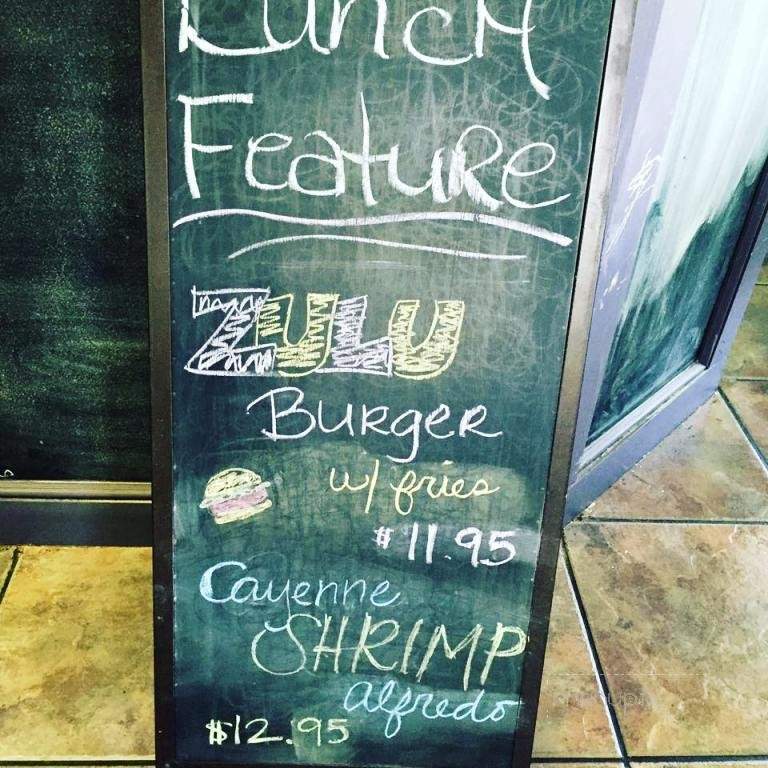 Lunch
Feature
ZULU
Burger
w/ fries
$11.95
Cayenne
SHRIMP
alfredo
$12.95